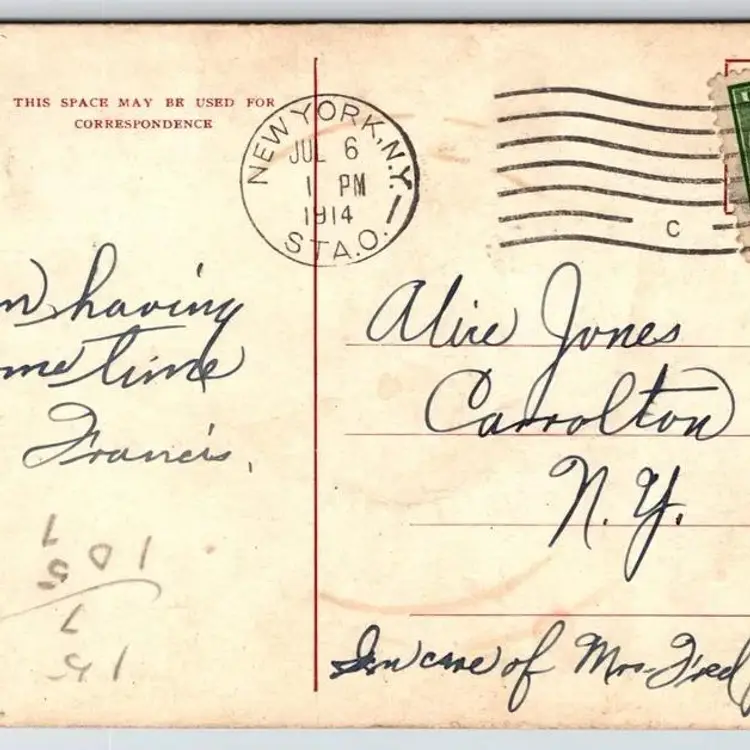 THIS SPACE MAY BE USED FOR
CORRESPONDENCE
NEW YORK, N.Y.
JUL 6
1 PM
1914
STA.O.
C
having
time
Francis.
Alice Jones
Carrolton
N.Y.
In care of Mrs. Fred